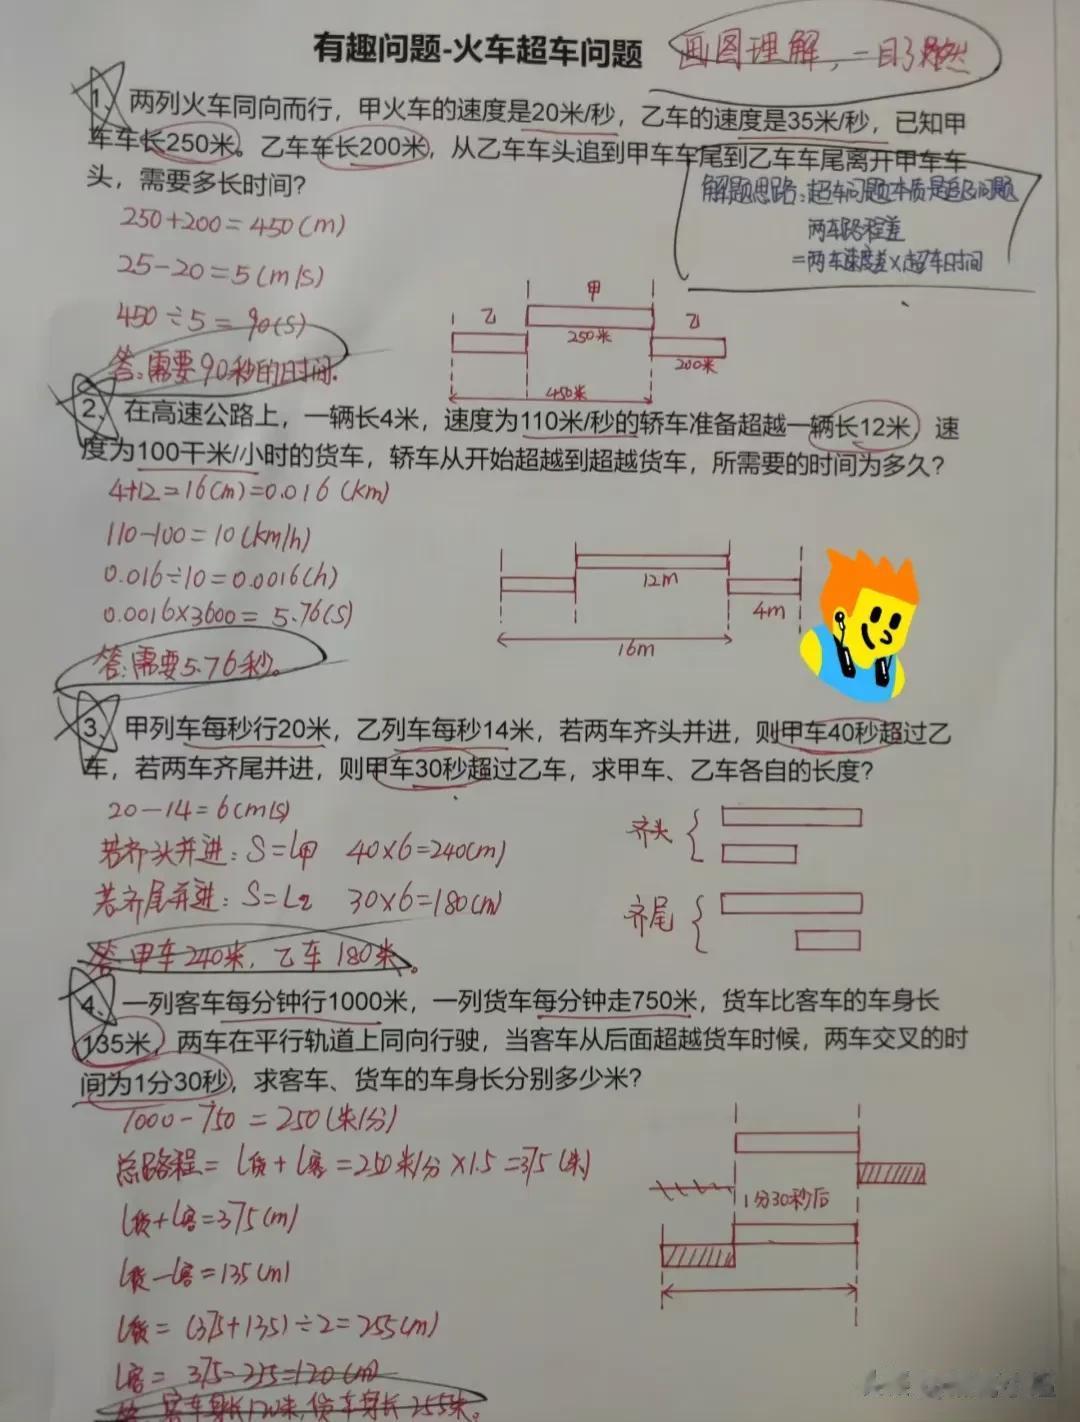 有趣问题-火车超车问题
画图理解，一目了然
1、两列火车同向而行，甲火车的速度是20米/秒，乙车的速度是35米/秒，已知甲
车车长250米。乙车车长200米，从乙车车头追到甲车车尾到乙车车尾离开甲车车
头，需要多长时间？
解题思路：超车问题本质是追及问题
两车路程差
=两车速度差×超车时间
250+200=450(m)
25-20=5(m/s)
450÷5=90(s)
答：需要90秒的时间.
甲
乙
250米
乙
200米
450米
2、在高速公路上，一辆长4米，速度为110米/秒的轿车准备超越一辆长12米，速
度为100千米/小时的货车，轿车从开始超越到超越货车，所需要的时间为多久？
4+12=16(m)=0.016(km)
110-100=10(km/h)
0.016÷10=0.0016(h)
0.0016×3600=5.76(s)
答：需要5.76秒。
12m
4m
16m
3、甲列车每秒行20米，乙列车每秒14米，若两车齐头并进，则甲车40秒超过乙
车，若两车齐尾并进，则甲车30秒超过乙车，求甲车、乙车各自的长度？
20-14=6(m/s)
若齐头并进：S=L甲 40×6=240(m)
若齐尾并进：S=L乙 30×6=180(m)
答：甲车240米，乙车180米。
齐头
齐尾
4、一列客车每分钟行1000米，一列货车每分钟走750米，货车比客车的车身长
135米，两车在平行轨道上同向行驶，当客车从后面超越货车时候，两车交叉的时
间为1分30秒，求客车、货车的车身长分别多少米？
1000-750=250(米/分)
总路程=L货+L客=250米/分×1.5=375(米)
L货+L客=375(m)
L货-L客=135(m)
L货=(375+135)÷2=255(m)
L客=375-255=120(m)
答：客车身长120米，货车身长255米。
1分30秒后